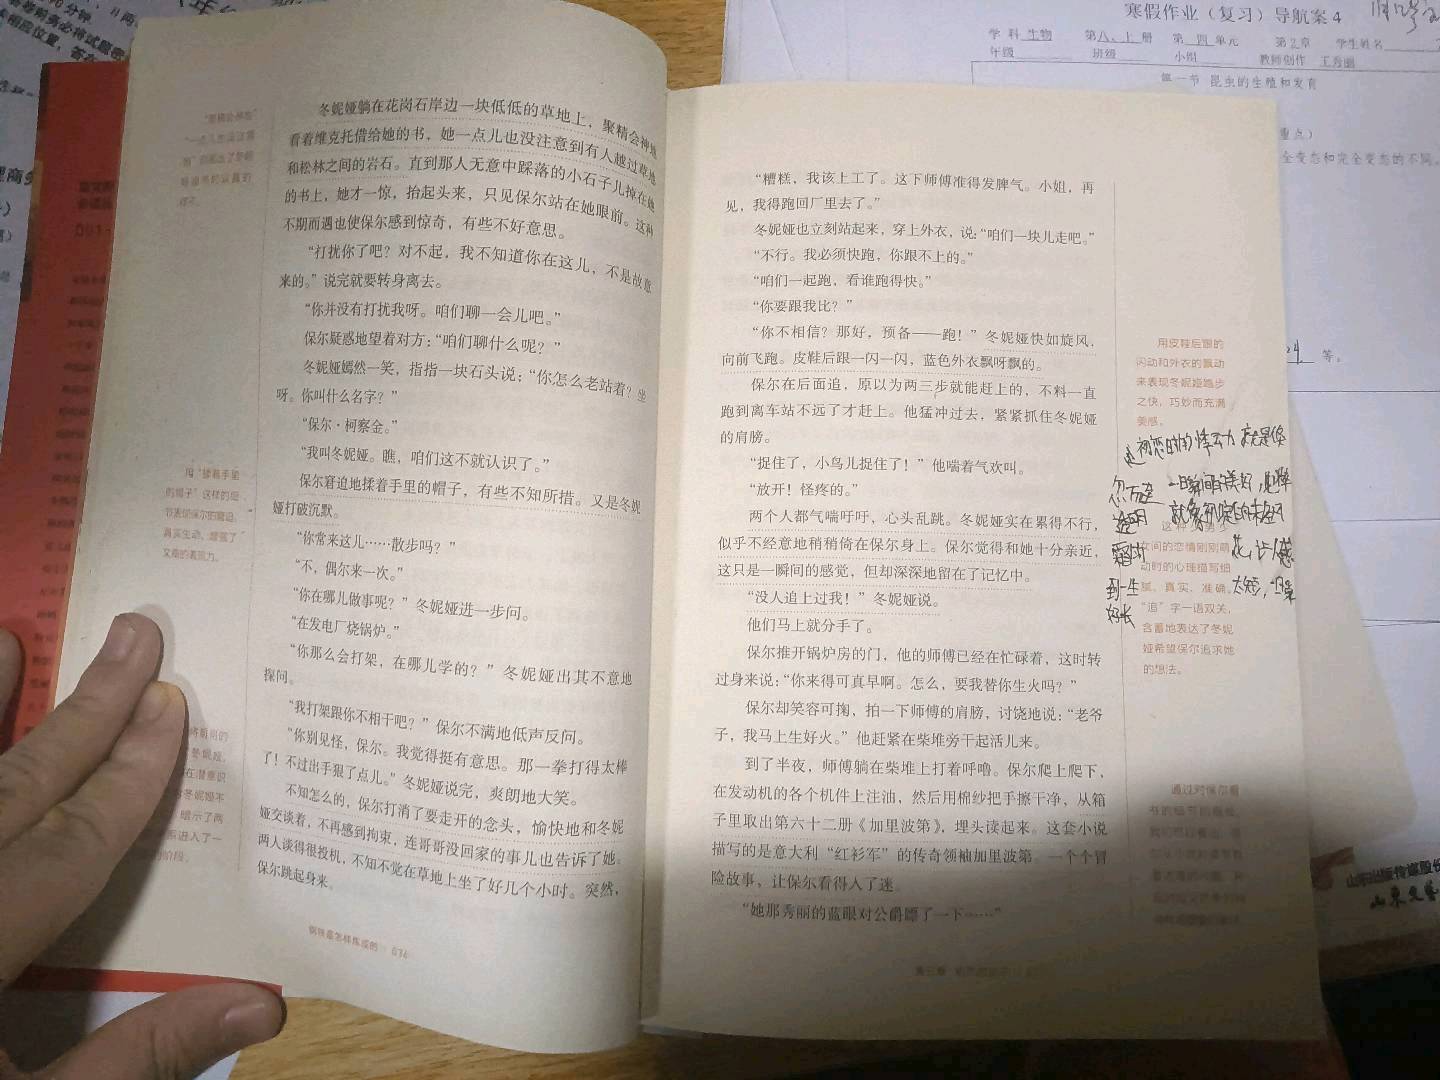 冬妮娅躺在花岗石岸边一块低低的草地上，聚精会神地
看着维克托借给她的书，她一点儿也没注意到有人越过草地
和松林之间的岩石。直到那人无意中踩落的小石子儿掉在她
的书上，她才一惊，抬起头来，只见保尔站在她眼前。这种
不期而遇也使保尔感到惊奇，有些不好意思。
“打扰你了吧？对不起，我不知道你在这儿，不是故意
来的。”说完就要转身离去。
“你并没有打扰我呀。咱们聊一会儿吧。”
保尔疑惑地望着对方：“咱们聊什么呢？”
冬妮娅嫣然一笑，指指一块石头说：“你怎么老站着？坐
呀。你叫什么名字？”
“保尔·柯察金。”
“我叫冬妮娅。瞧，咱们这不就认识了。”
保尔窘迫地揉着手里的帽子，有些不知所措。又是冬妮
娅打破沉默。
“你常来这儿……散步吗？”
“不，偶尔来一次。”
“你在哪儿做事呢？”冬妮娅进一步问。
“在发电厂烧锅炉。”
“你那么会打架，在哪儿学的？”冬妮娅出其不意地
探问。
“我打架跟你不相干吧？”保尔不满地低声反问。
“你别见怪，保尔。我觉得挺有意思。那一拳打得太棒
了！不过出手狠了点儿。”冬妮娅说完，爽朗地大笑。
不知怎么的，保尔打消了要走开的念头，愉快地和冬妮
娅交谈着，不再感到拘束，连哥哥没回家的事儿也告诉了她。
两人谈得很投机，不知不觉在草地上坐了好几个小时。突然，
保尔跳起身来。
用“揉着手里
的帽子”这样的细
节表现保尔的窘迫，
真实生动，增强了
文章的表现力。
钢铁是怎样炼成的 034
“糟糕，我该上工了。这下师傅准得发脾气。小姐，再
见，我得跑回厂里去了。”
冬妮娅也立刻站起来，穿上外衣，说：“咱们一块儿走吧。”
“不行。我必须快跑，你跟不上的。”
“咱们一起跑，看谁跑得快。”
“你要跟我比？”
“你不相信？那好，预备——跑！”冬妮娅快如旋风，
向前飞跑。皮鞋后跟一闪一闪，蓝色外衣飘呀飘的。
保尔在后面追，原以为两三步就能赶上的，不料一直
跑到离车站不远了才赶上。他猛冲过去，紧紧抓住冬妮娅
的肩膀。
“捉住了，小鸟儿捉住了！”他喘着气欢叫。
“放开！怪疼的。”
两个人都气喘吁吁，心头乱跳。冬妮娅实在累得不行，
似乎不经意地稍稍倚在保尔身上。保尔觉得和她十分亲近，
这只是一瞬间的感觉，但却深深地留在了记忆中。
“没人追上过我！”冬妮娅说。
他们马上就分手了。
保尔推开锅炉房的门，他的师傅已经在忙碌着，这时转
过身来说：“你来得可真早啊。怎么，要我替你生火吗？”
保尔却笑容可掬，拍一下师傅的肩膀，讨饶地说：“老爷
子，我马上生好火。”他赶紧在柴堆旁干起活儿来。
到了半夜，师傅躺在柴堆上打着呼噜。保尔爬上爬下，
在发动机的各个机件上注油，然后用棉纱把手擦干净，从箱
子里取出第六十二册《加里波第》，埋头读起来。这套小说
描写的是意大利“红衫军”的传奇领袖加里波第。一个个冒
险故事，让保尔看得入了迷。
“她那秀丽的蓝眼对公爵瞟了一下……”
用皮鞋后跟的
闪动和外衣的飘动
来表现冬妮娅跑步
之快，巧妙而充满
美感。
这种少男少
女间的恋情刚刚萌
动时的心理描写细
腻、真实、准确。
“追”字一语双关，
含蓄地表达了冬妮
娅希望保尔追求她
的想法。
寒假作业（复习）导航案 4
学科 生物 第八、上 册 第 四 单元 第2章 学生姓名
年级 班级 小组 教师创作
第一节 昆虫的生殖和发育
重点）
全变态和完全变态的不同。
等。